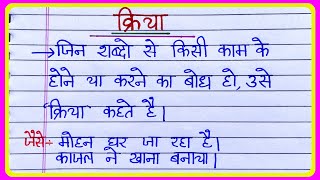 क्रिया
→ जिन शब्दो से किसी काम के
होने या करने का बोध हो, उसे
'क्रिया' कहते है।
जैसे÷ मोहन घर जा रहा है।
काजल ने खाना बनाया।